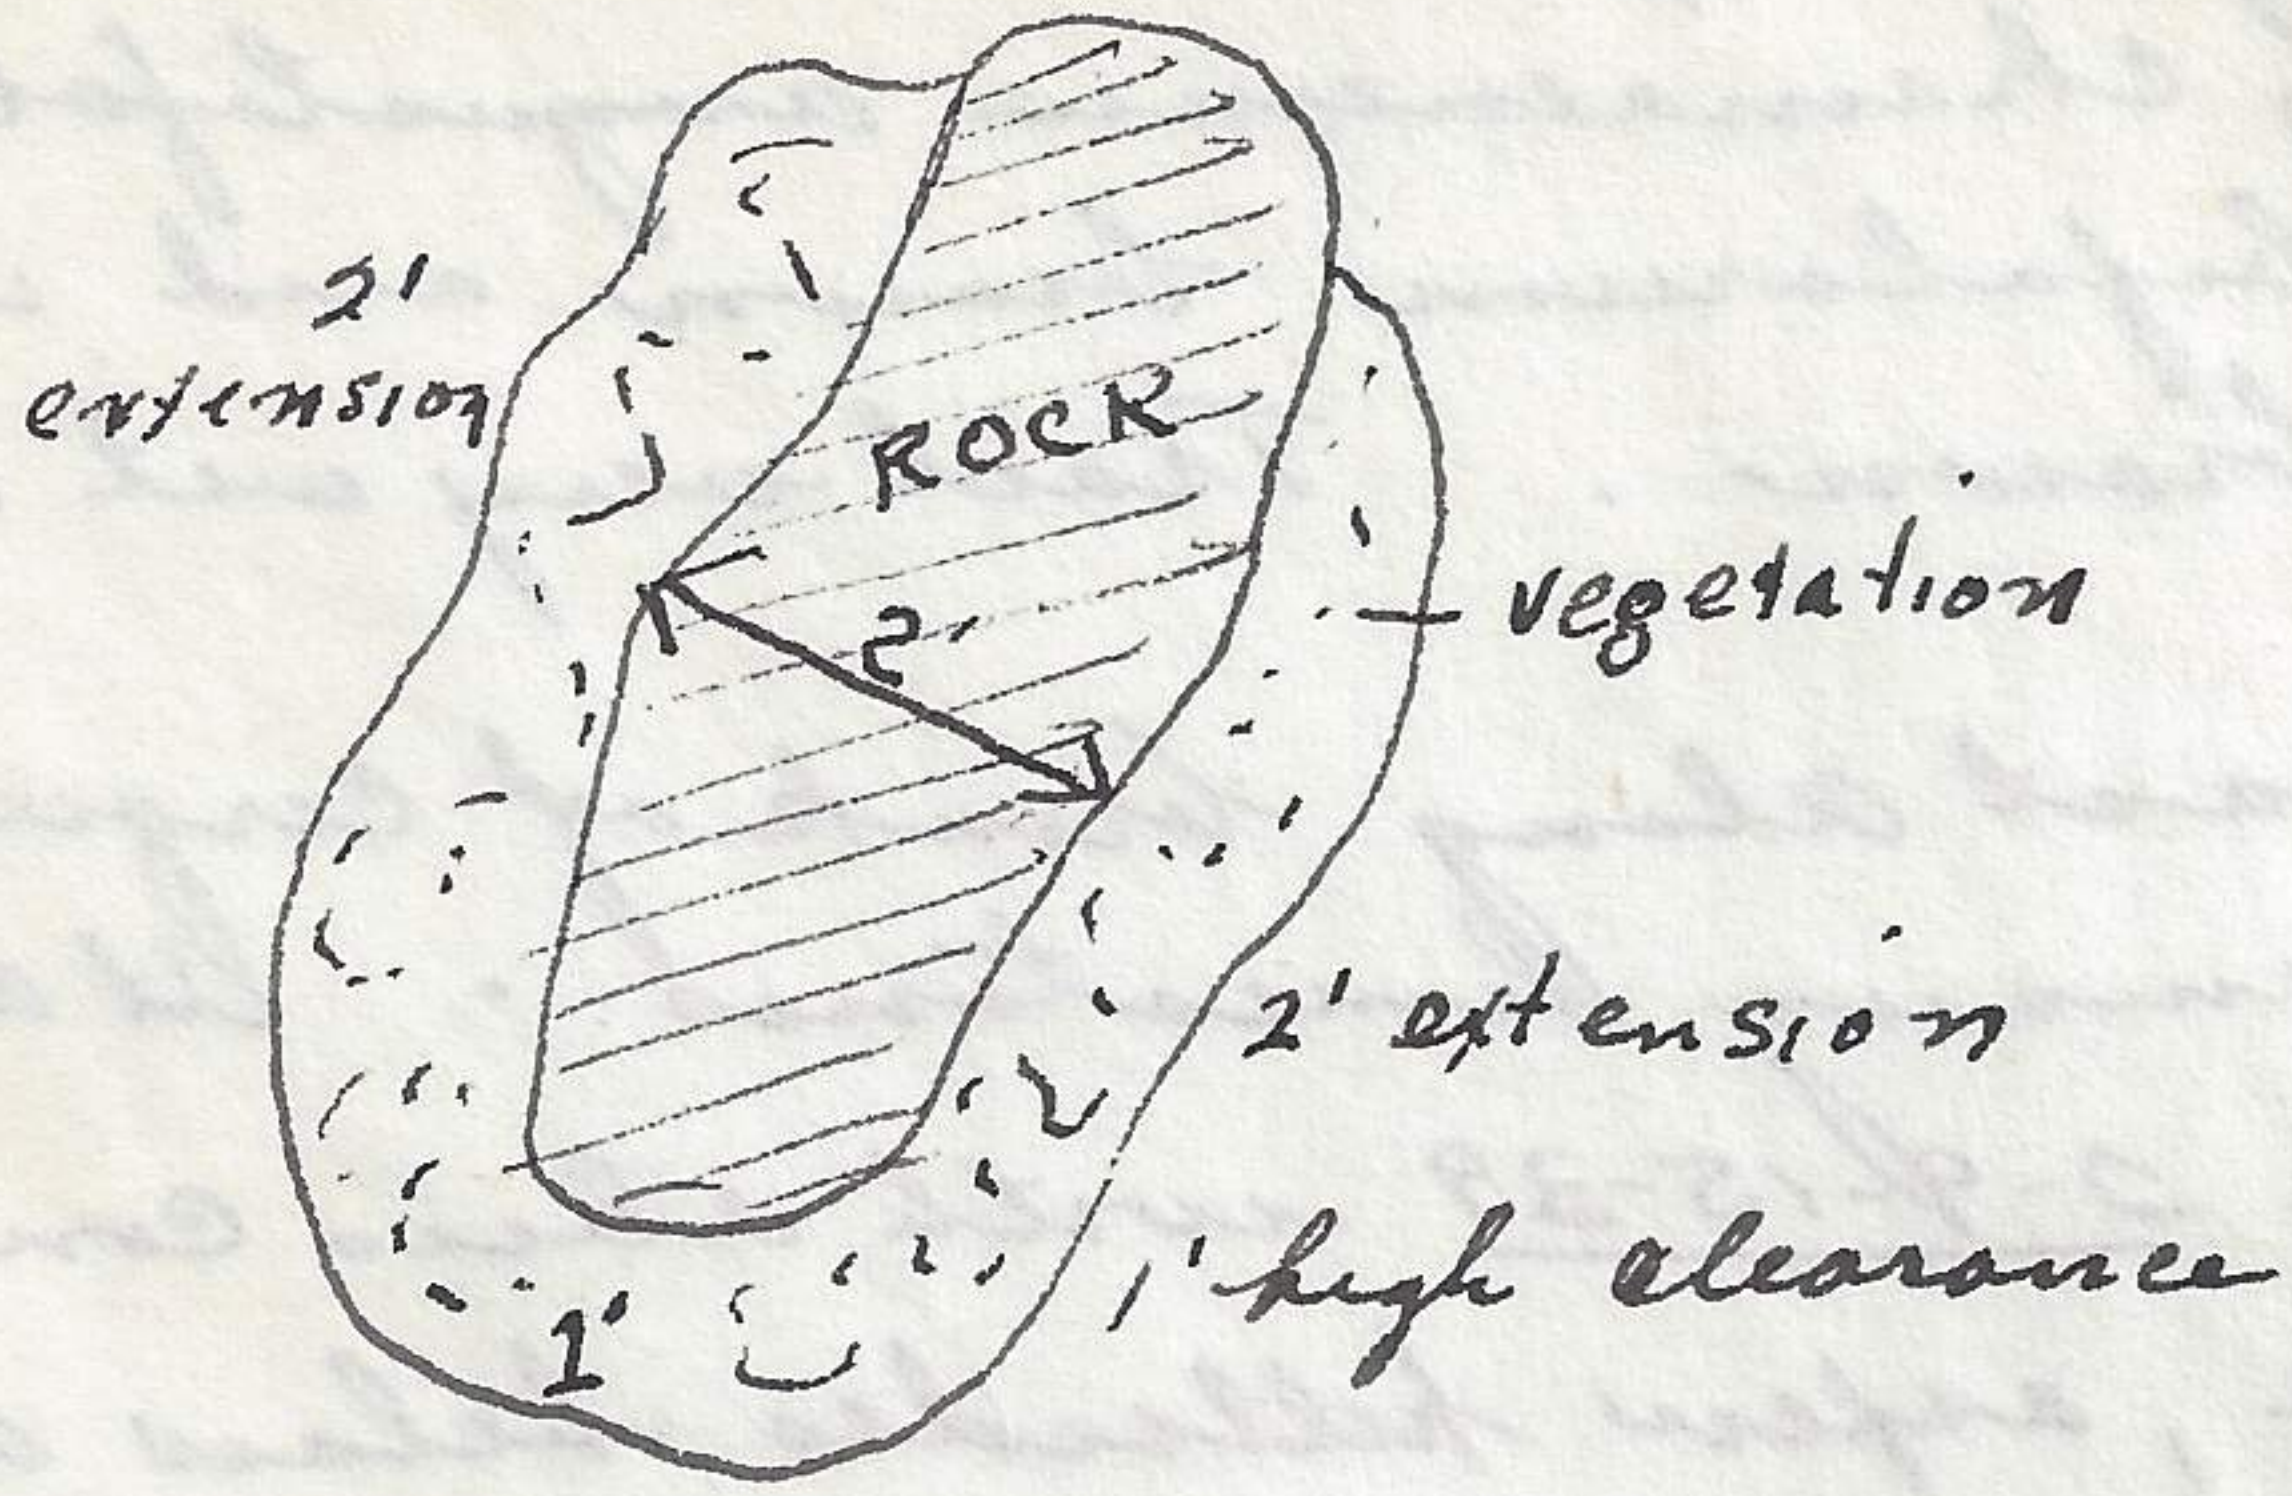 2'
extension
ROCK
2'
vegetation
2' extension
1' high clearance
1'